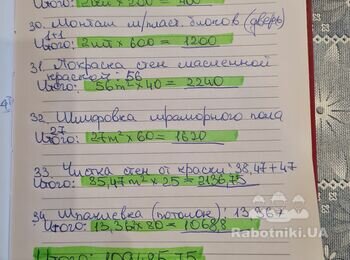 Итого: 2шт × 200 = 400
30. Монтаж м/пласт. блоков (дверь)
1+1
Итого: 2шт × 600 = 1200
31. Покраска стен масленной
краской: 56
Итого: 56м² × 40 = 2240
32. Шлифовка мраморного пола
27
Итого: 27м² × 60 = 1620
33. Чистка стен от краски: 38,47+47
Итого: 85,47м² × 25 = 2136,75
34. Шпаклевка (потолок): 13,367
Итого: 13,36 × 80 = 1068,8
Rabotniki.UA